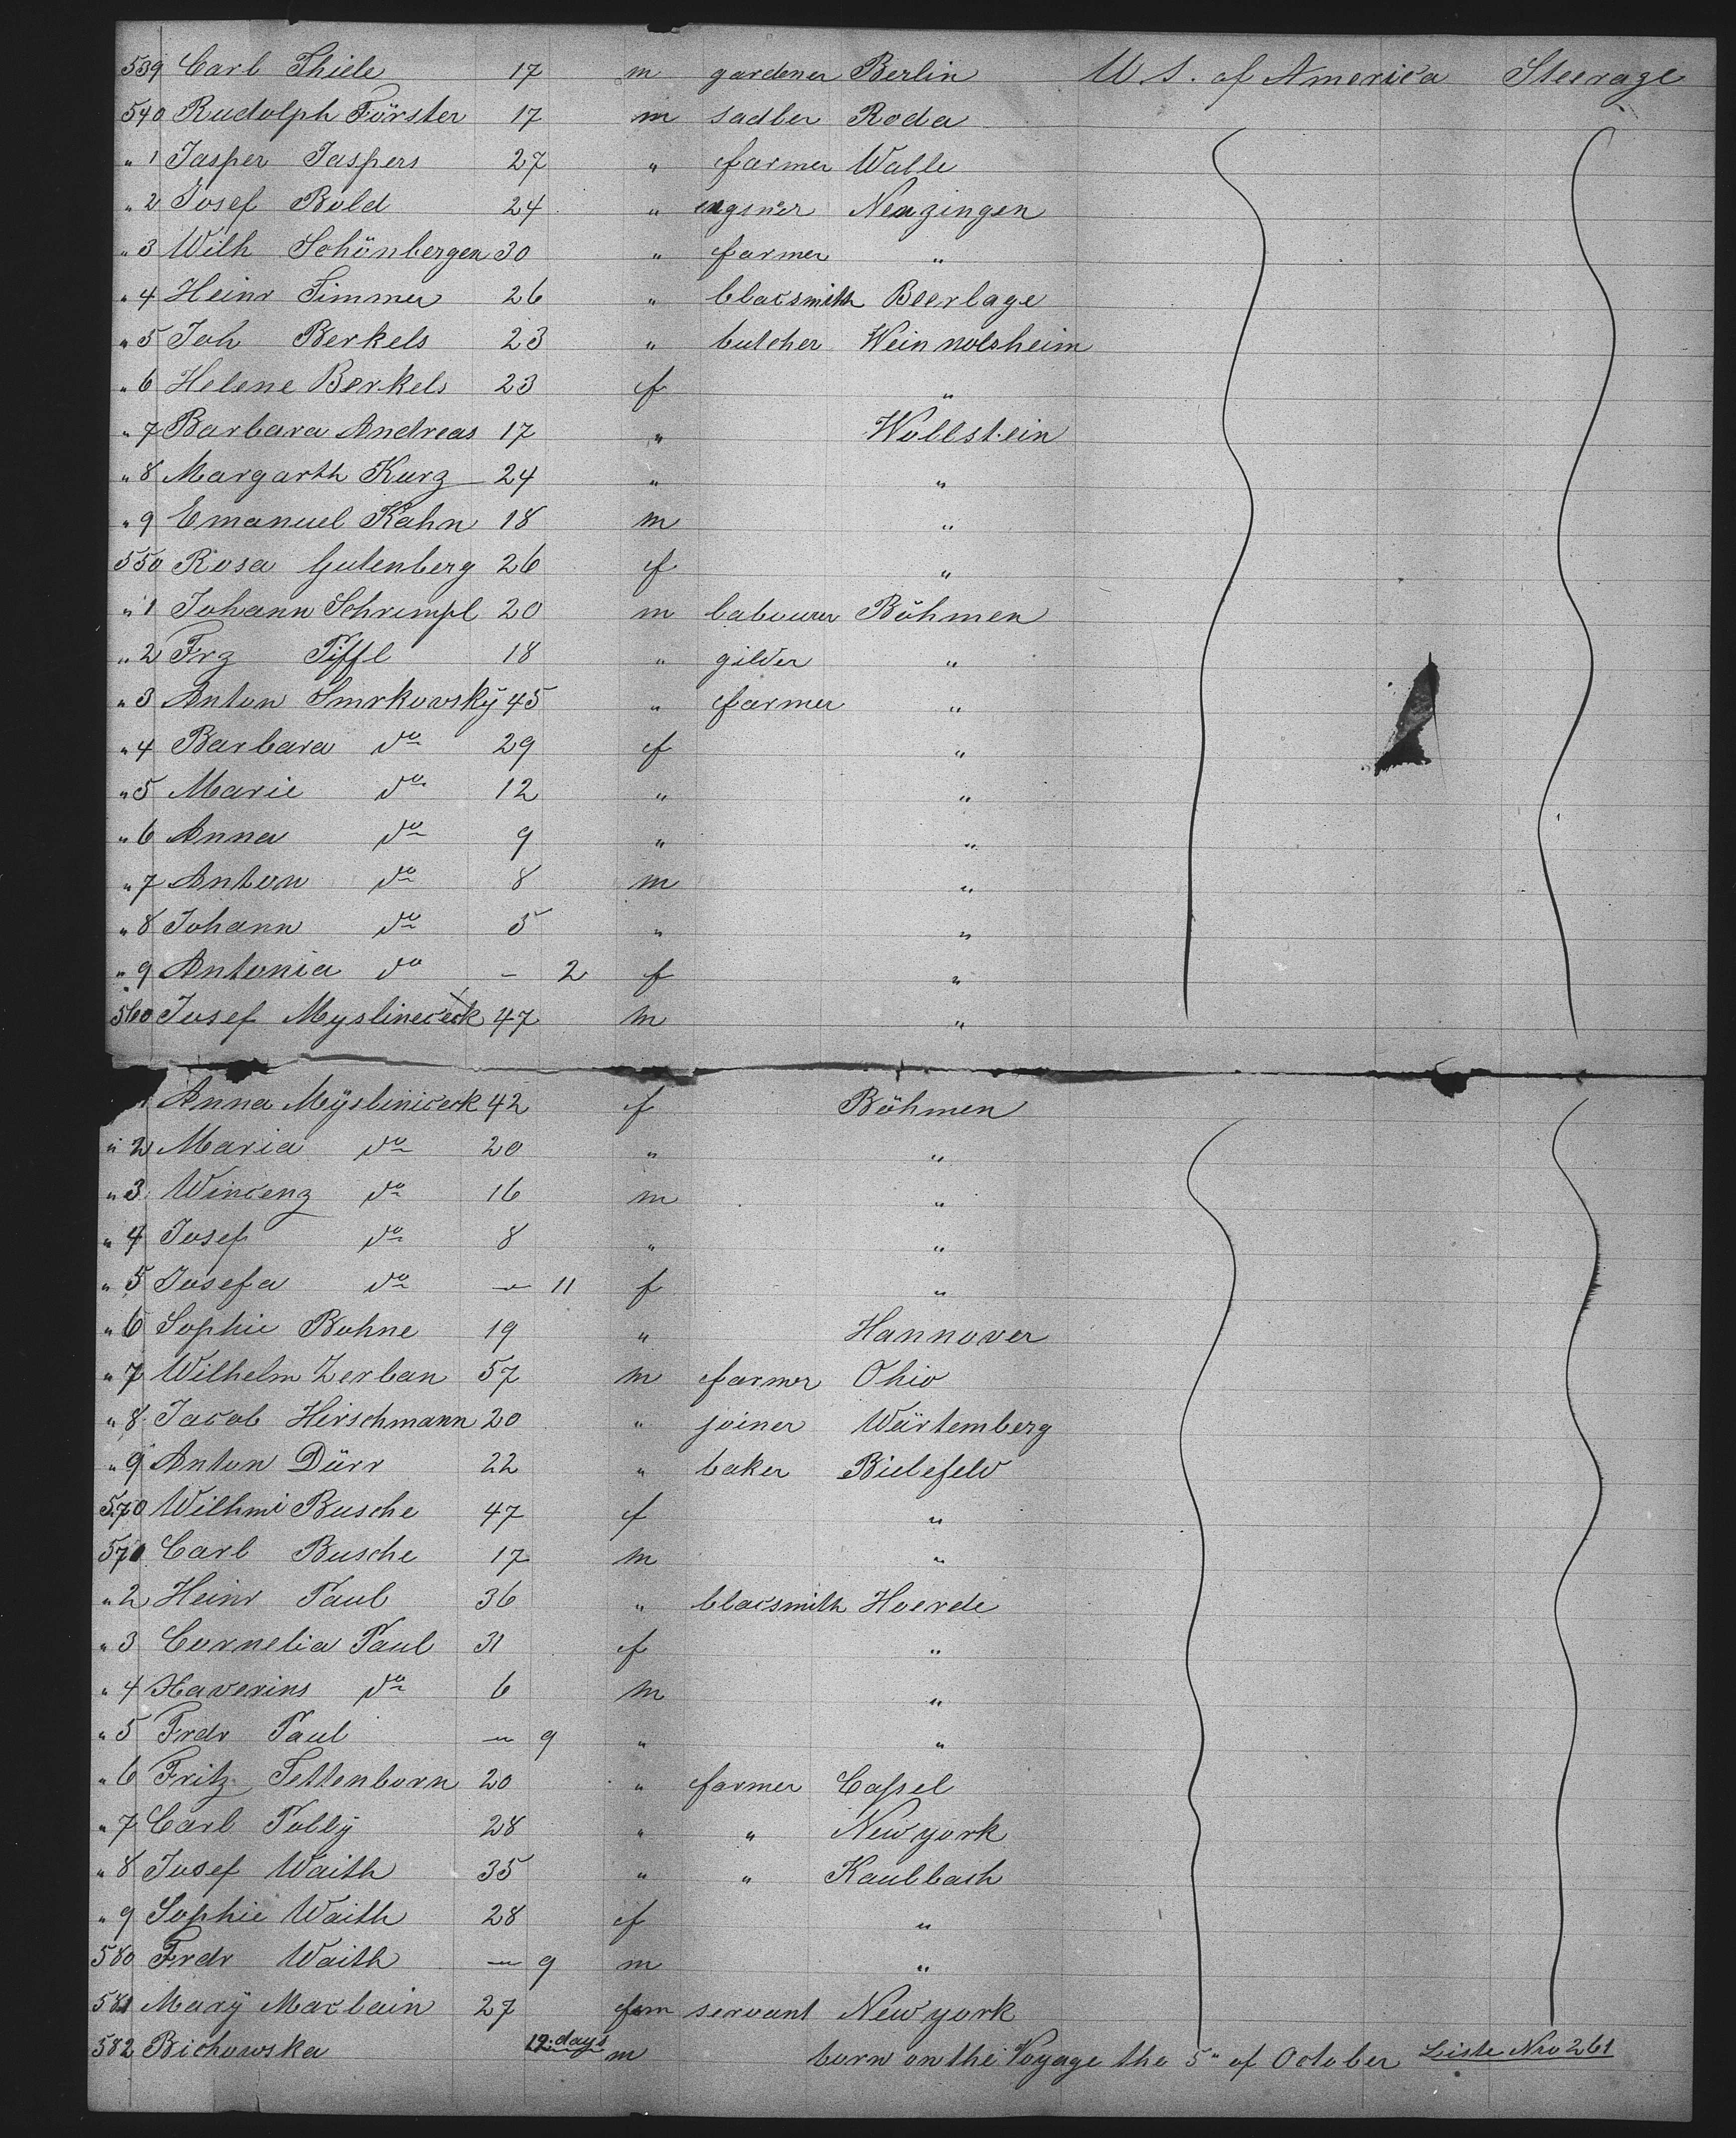 539 Carl Thiele 17 m gardener Berlin U S. of America Steerage
540 Rudolph Förster 17 m sadler Roda
" 1 Jasper Jaspers 27 " farmer Walle
" 2 Josef Bold 24 " Nenzingen
" 3 Wilh Schönbergen 30 " farmer "
" 4 Heinr Timmer 26 " blacsmith Beerlage
" 5 Joh Berkels 23 " butcher Weinnolsheim
" 6 Helene Berkels 23 f "
" 7 Barbara Andreas 17 " Wollstein
" 8 Margarth Kurz 24 " "
" 9 Emanuel Kahn 18 m "
550 Rosa Gutenberg 26 f "
" 1 Johann Schrimpl 20 m labourer Böhmen
" 2 Frz Piffl 18 " gilder "
" 3 Anton Smrkovskÿ 45 " farmer "
" 4 Barbara do 29 f "
" 5 Marie do 12 " "
" 6 Anna do 9 " "
" 7 Anton do 8 m "
" 8 Johann do 5 " "
" 9 Antonia do - 2 f "
560 Josef 47 m "
1 Anna Mÿsliniceck 42 f Böhmen
" 2 Maria do 20 " "
" 3 Wincenz do 16 m "
" 4 Josef do 8 " "
" 5 Josefa do - 11 f "
" 6 Sophie Bohne 19 " Hannover
" 7 Wilhelm Zerban 57 m farmer Ohio
" 8 Jacob Hirschmann 20 " joiner Würtemberg
" 9 Anton Dürr 22 " baker Bielefeld
570 Wilhmi Busche 47 f "
571 Carl Busche 17 m "
" 2 Heinr Paul 36 " blacsmith Hoerde
" 3 Cornelia Paul 31 f "
" 4 Haverins do 6 m "
" 5 Frdr Paul - 9 " "
" 6 Fritz Tettenborn 20 " farmer Cassel
" 7 Carl Polly 28 " " New york
" 8 Josef Waith 35 " " Kaulbach
" 9 Sophie Waith 28 f "
580 Frdr Waith - 9 m "
581 Marÿ Maclain 27 fem servant New york
582 Bichowska 12. days m born on the Voyage the 5" of October Liste Nro 261